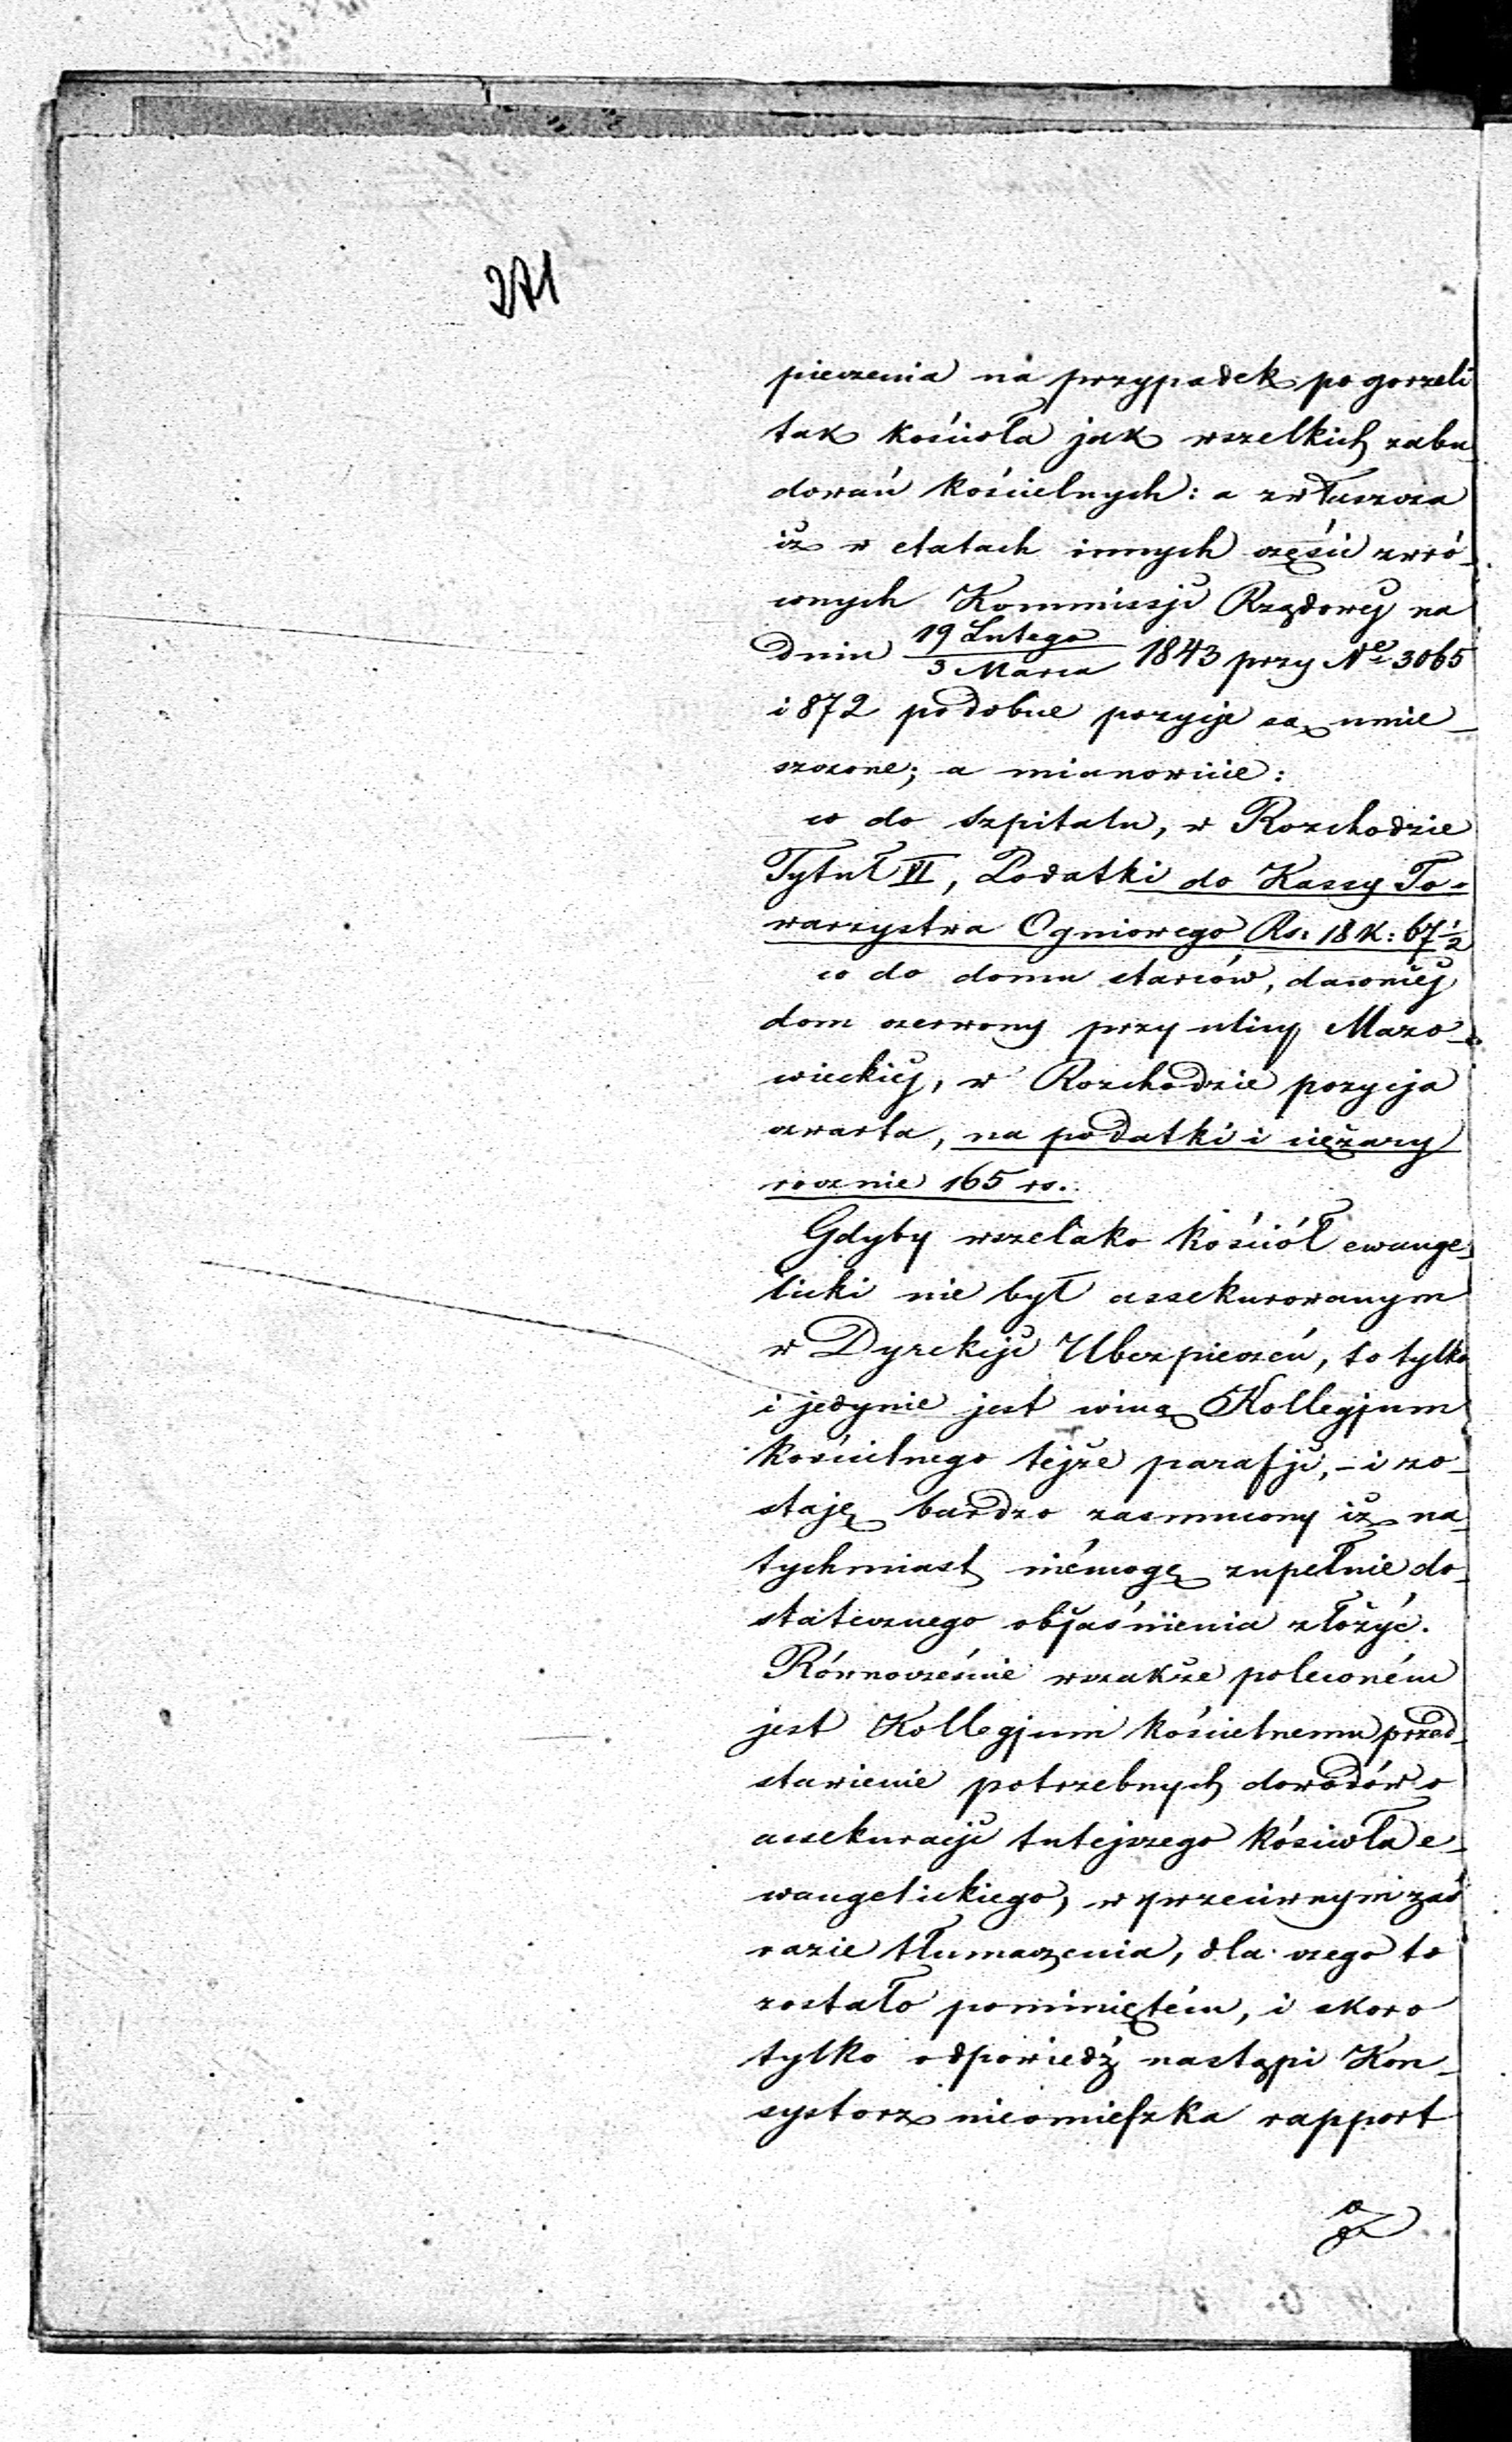 271
pieczenia na przypadek pogorzeli
tak kościoła jak wszelkich zabu
dowań kościelnych: a zwłaszcza
iż w etatach innych części zwró-
conych Kommissji Rządowej na
dniu 19 Lutego / 3 Marca 1843 przy Nr 3065
i 872 podobne pozycje są umie-
szczone; a mianowicie:
co do szpitalu, w Rozchodzie
Tytuł VI, Podatki do Kassy To-
warzystwa Ogniowego Rs: 18 K: 67½
co do domu starców, dawniej
dom czerwony przy ulicy Mazo-
wieckiej, w Rozchodzie pozycja
czwarta, na podatki i ciężary
rocznie 165 rs.
Gdyby wszelako kościół ewange-
licki nie był assekurowanym
w Dyrekcji Ubezpieczeń, to tylko
i jedynie jest winą Kollegjum
kościelnego tejże parafji, - i zo-
staję bardzo zasmucony iż na-
tychmiast niémogę zupełnie do-
statecznego objaśnienia złożyć.
Równocześnie wszakże poleconém
jest Kollegjum kościelnemu przed-
stawienie potrzebnych dowodów o
assekuracji tutejszego kościoła e-
wangelickiego, w przeciwnym zaś
razie tłumaczenia, dla czego to
zostało pominiętém, i skoro
tylko odpowiedź nastąpi Kon-
systorz nieomieszka rapport